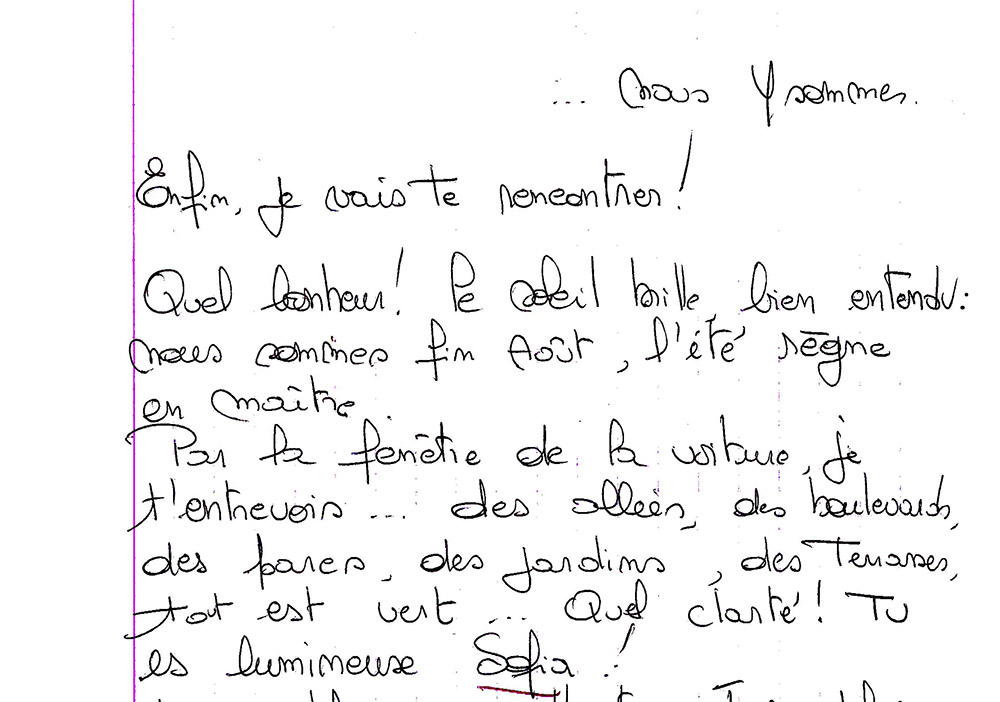 ... nous y sommes.
Enfin, je vais te rencontrer !
Quel bonheur ! Le soleil brille, bien entendu :
nous sommes fin Août, l'été règne
en maître.
Par la fenêtre de la voiture, je
t'entrevois ... des allées, des boulevards,
des parcs, des jardins, des Terrasses,
tout est vert ... Quel clarté ! Tu
es lumineuse Sofia !